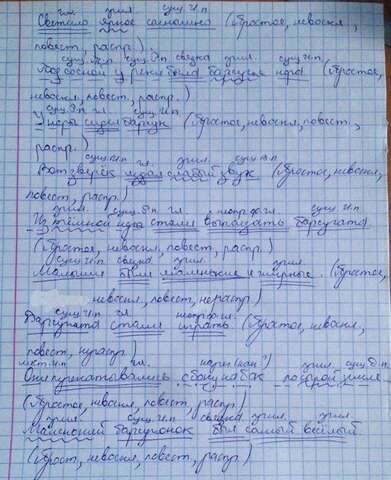 гл. прил. сущ. И.п
Светило яркое солнышко (простое, невоскл.,
повест., распр.)
сущ. Т.п сущ. Р.п связка прил. сущ. И.п
Под сосной у реки была барсучья нора (простое,
невоскл., повест., распр.)
сущ. Р.п гл сущ. И.п
У норы сидел барсук (простое, невоскл., повест.,
распр.)
сущ. И.п гл. прил. сущ. В.п
Вот зверёк издал слабый звук (простое, невоскл.,
повест., распр.)
прил. сущ. Р.п гл неопр.ф.гл сущ. И.п
Из тёмной норы стали выползать барсучата
(простое, невоскл., повест., распр.)
сущ. И.п связка прил. прил.
Малыши были маленькие и жирные. (простое,
невоскл., повест., нераспр.)
сущ. И.п гл неопр.ф.
Барсучата стали играть. (простое, невоскл.,
повест., нераспр.)
мест. И.п гл. нареч (как?) прил. сущ. Д.п
Они перекатывались с боку на бок по сырой земле
(простое, невоскл., повест., распр.)
прил. сущ. И.п связка прил. прил.
Маленький барсучонок был самый весёлый.
(прост., невоскл., повест., распр.)